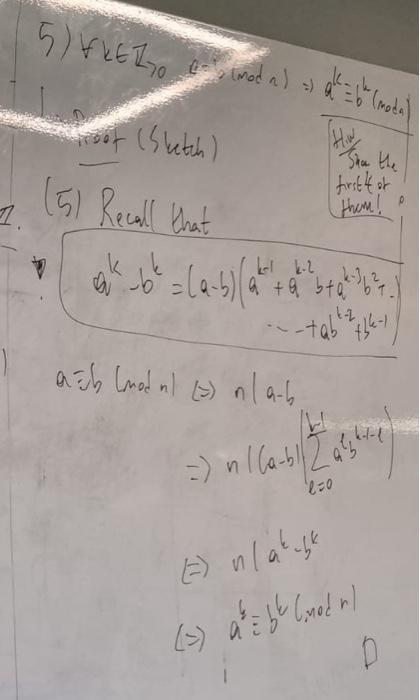 5) ∀k∈ℤ>0 a≡b (mod n) ⇒ a^k ≡ b^k (mod n)
Proof (Sketch)
H.W
Show the
first 4 of
them!
(5) Recall that
a^k - b^k = (a-b)(a^{k-1} + a^{k-2}b + a^{k-3}b^2 + ...
... + ab^{k-2} + b^{k-1})
a≡b (mod n) ⇔ n | a-b
⇒ n | (a-b)(∑_{l=0}^{k-1} a^l b^{k-1-l})
⇔ n | a^k - b^k
⇔ a^k ≡ b^k (mod n)
□